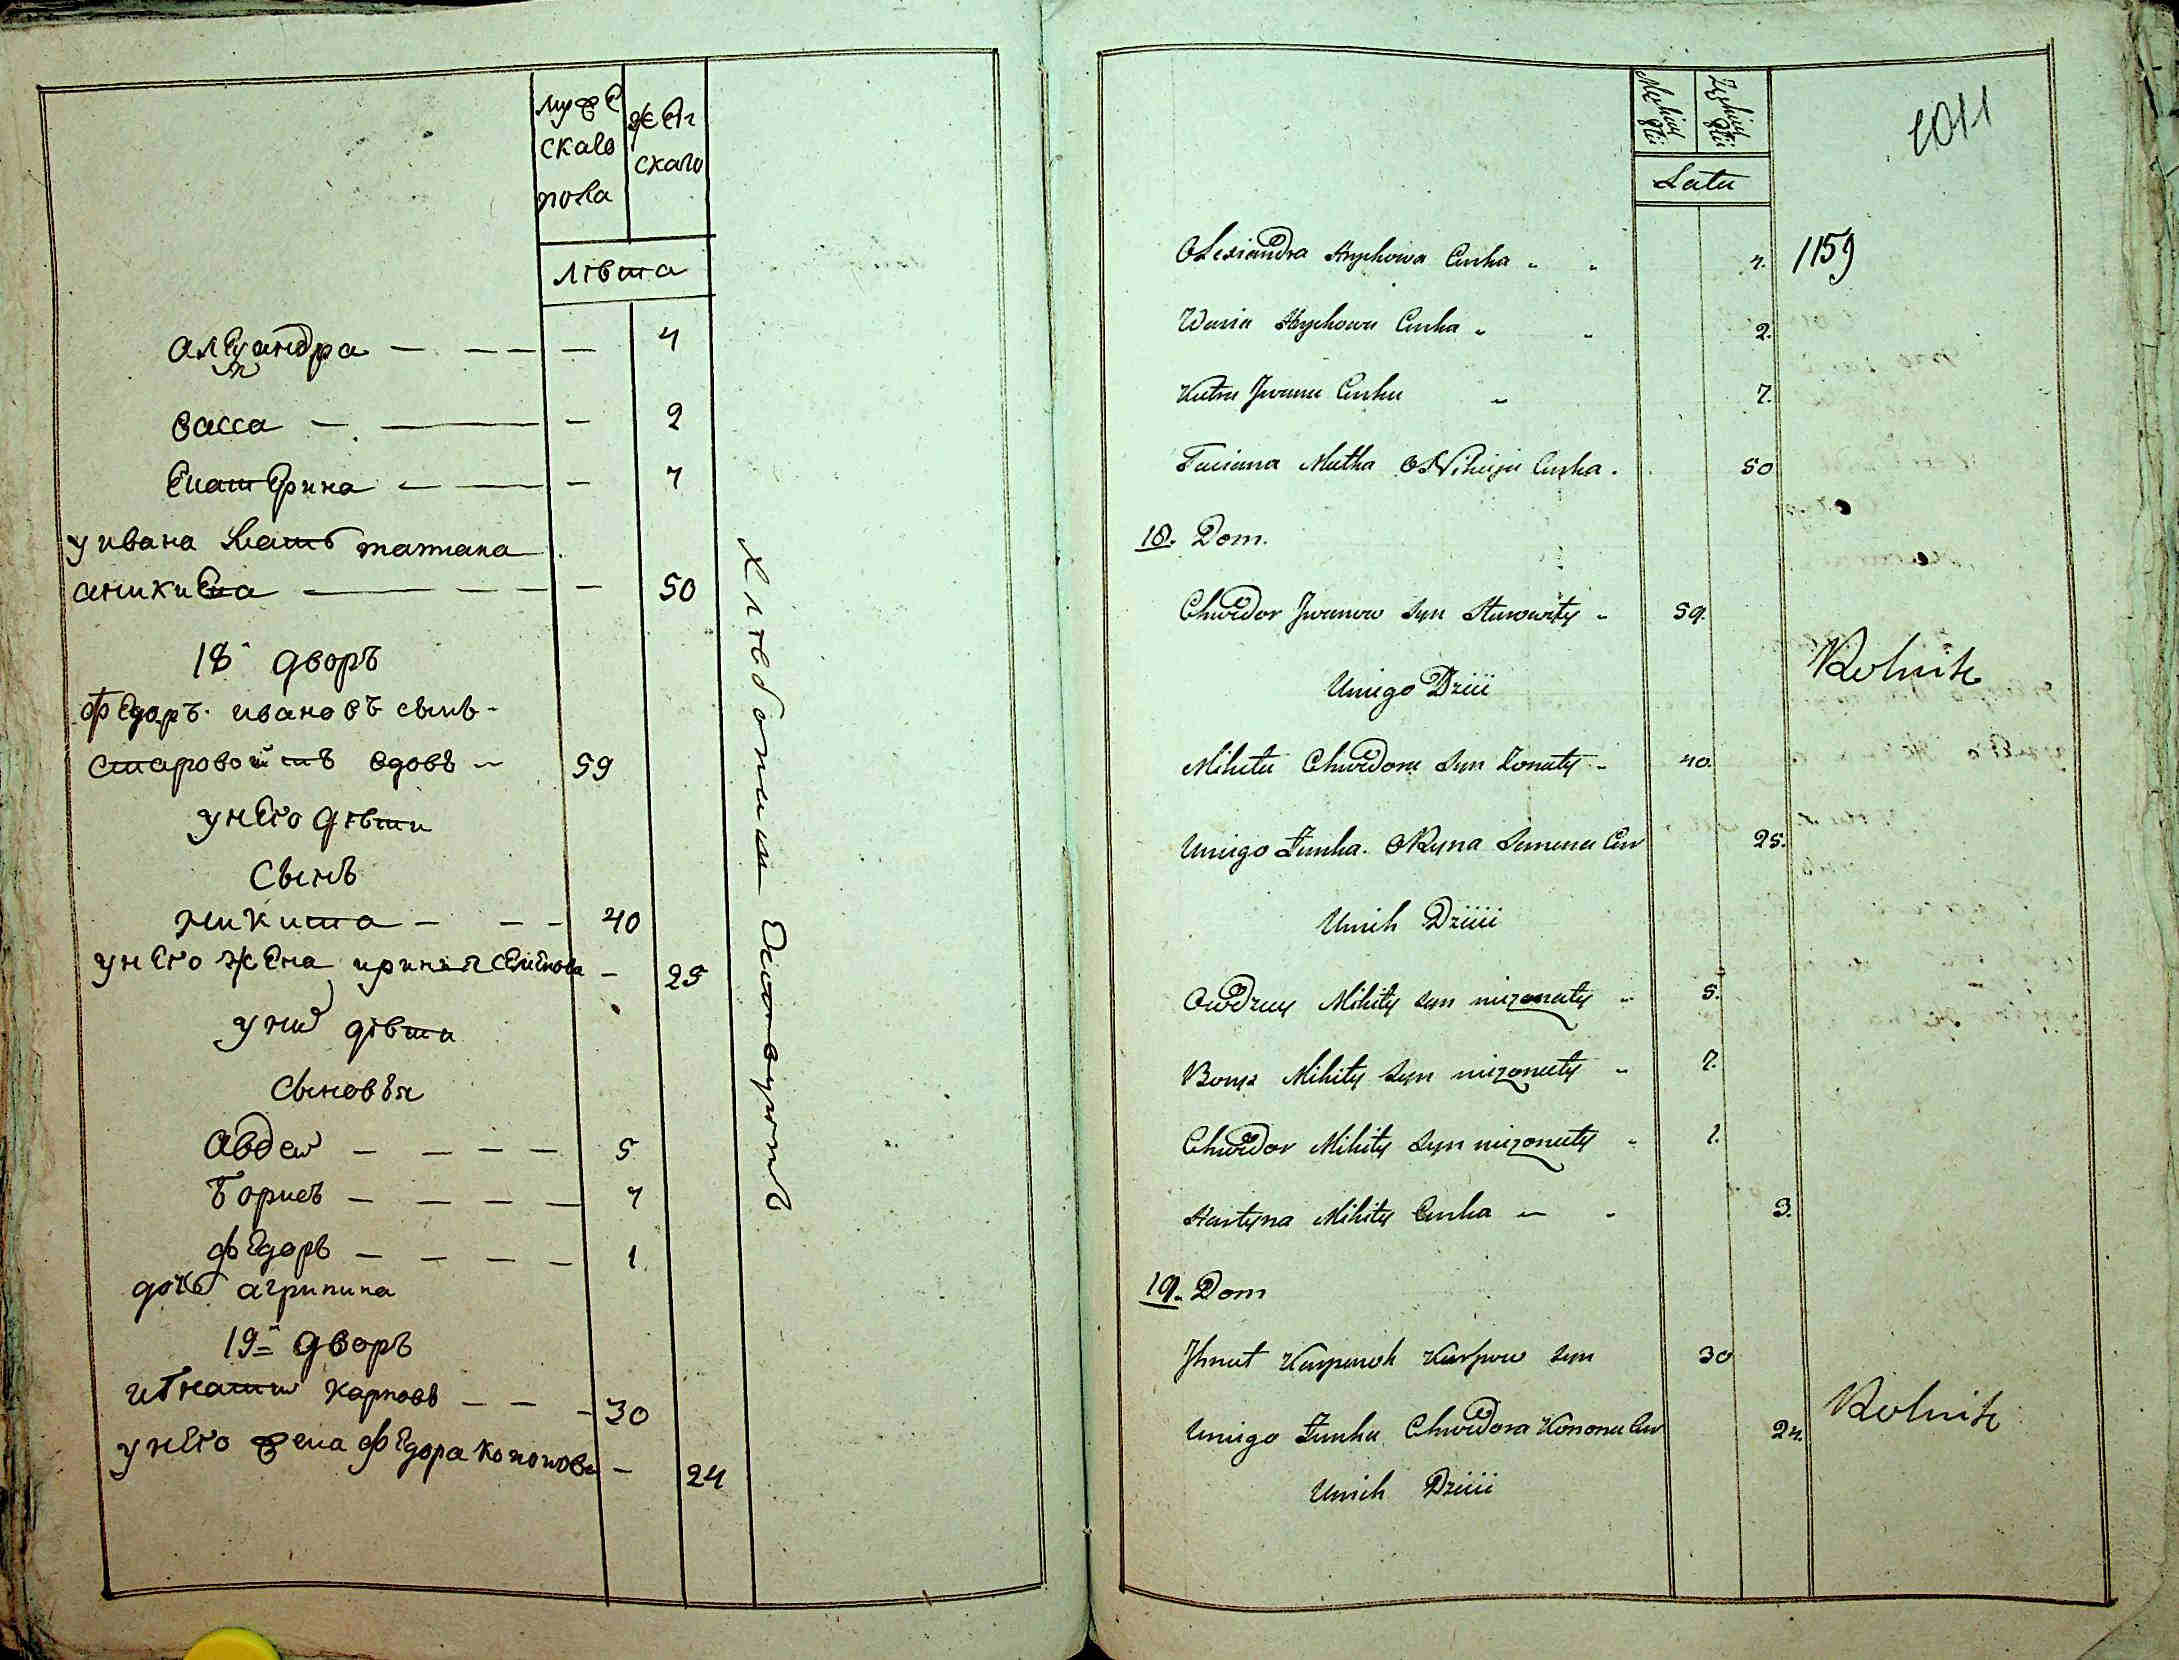 мужескаго пола
женскаго
лѣта
александра — — — — 4
васса — — — 2
екатерина — — — 7
у ивана мать татиана
аникиева — — — — 50
18 дворъ
федоръ ивановъ сынъ
старовойтъ вдовъ — 59
у него дѣти
сынъ
никита — — — 40
у него жена ирина семенова — 25
у них дѣти
сыновья
авдей — — — — 5
борисъ — — — — 7
федоръ — — — — 1
дочь агрипина
19 дворъ
игнатий карповъ — — — 30
у него жена федора кононова — 24
хлѣбопашествуютъ
Męskiey Płci
Żeńskiey Płci
Lata
1011
Olexiandra Hryhowa Curka 4.
1159
Wasia Hryhowa Curka 2.
Katra Jwana Curka 7.
Taciana Matka ONikieja Curka. 50
18. Dom.
Chwedor Jwanow Syn Starowity 59.
Rolnik
Uniego Dzieci
Mikita Chwedora Syn Żonaty 40.
Uniego Żonka Oryna Semena Cur 25.
Unich Dzieci
Owdzey Mikity Syn nieżonaty 5.
Borys Mikity Syn nieżonaty 7.
Chwedor Mikity Syn nieżonaty 1.
Hastyna Mikity Curka 3.
19. Dom
Jhnat Karpowoh Karpow Syn 30
Rolnik
Uniego Żonka Chwedora Konona Cur 24.
Unich Dzieci